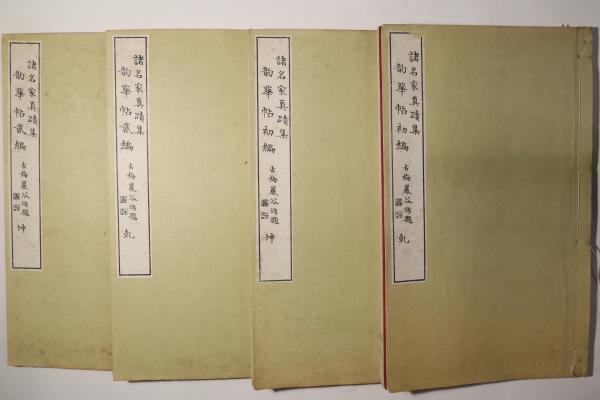 諸名家真蹟集
韵華帖初編
古梅巖谷修題
乾
諸名家真蹟集
韵華帖初編
古梅巖谷修題
坤
諸名家真蹟集
韵華帖貳編
古梅巖谷修題
乾
諸名家真蹟集
韵華帖貳編
古梅巖谷修題
坤